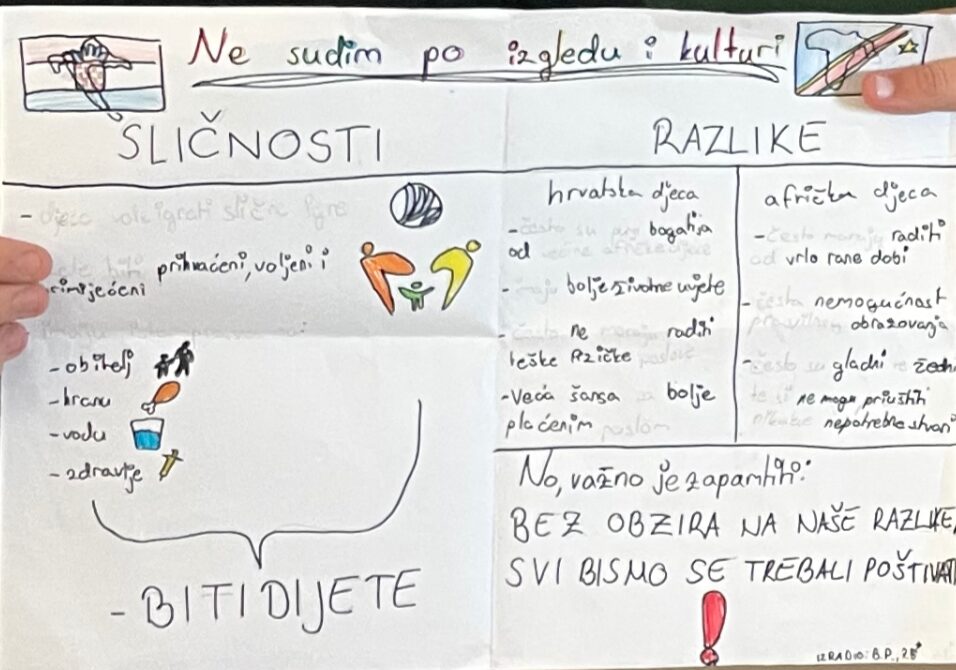 Ne sudim po izgledu i kulturi
SLIČNOSTI
- djeca vole igrati slične igre
prihvaćeni, voljeni i
- obitelj
- hranu
- vodu
- zdravlje
- BITI DIJETE
RAZLIKE
hrvatska djeca
- često su bogatija
od afričke djece
- imaju bolje životne uvjete
- često ne moraju raditi
teške fizičke poslove
- Veća šansa za bolje
plaćenim poslom
afrička djeca
- često moraju raditi
od vrlo rane dobi
- česta nemogućnost
pravilnog obrazovanja
- često su gladni žedni
te si ne mogu priuštiti
nepotrebne stvari
No, važno je zapamtiti:
BEZ OBZIRA NA NAŠE RAZLIKE,
SVI BISMO SE TREBALI POŠTIVATI
!
IZRADIO: B.P.,